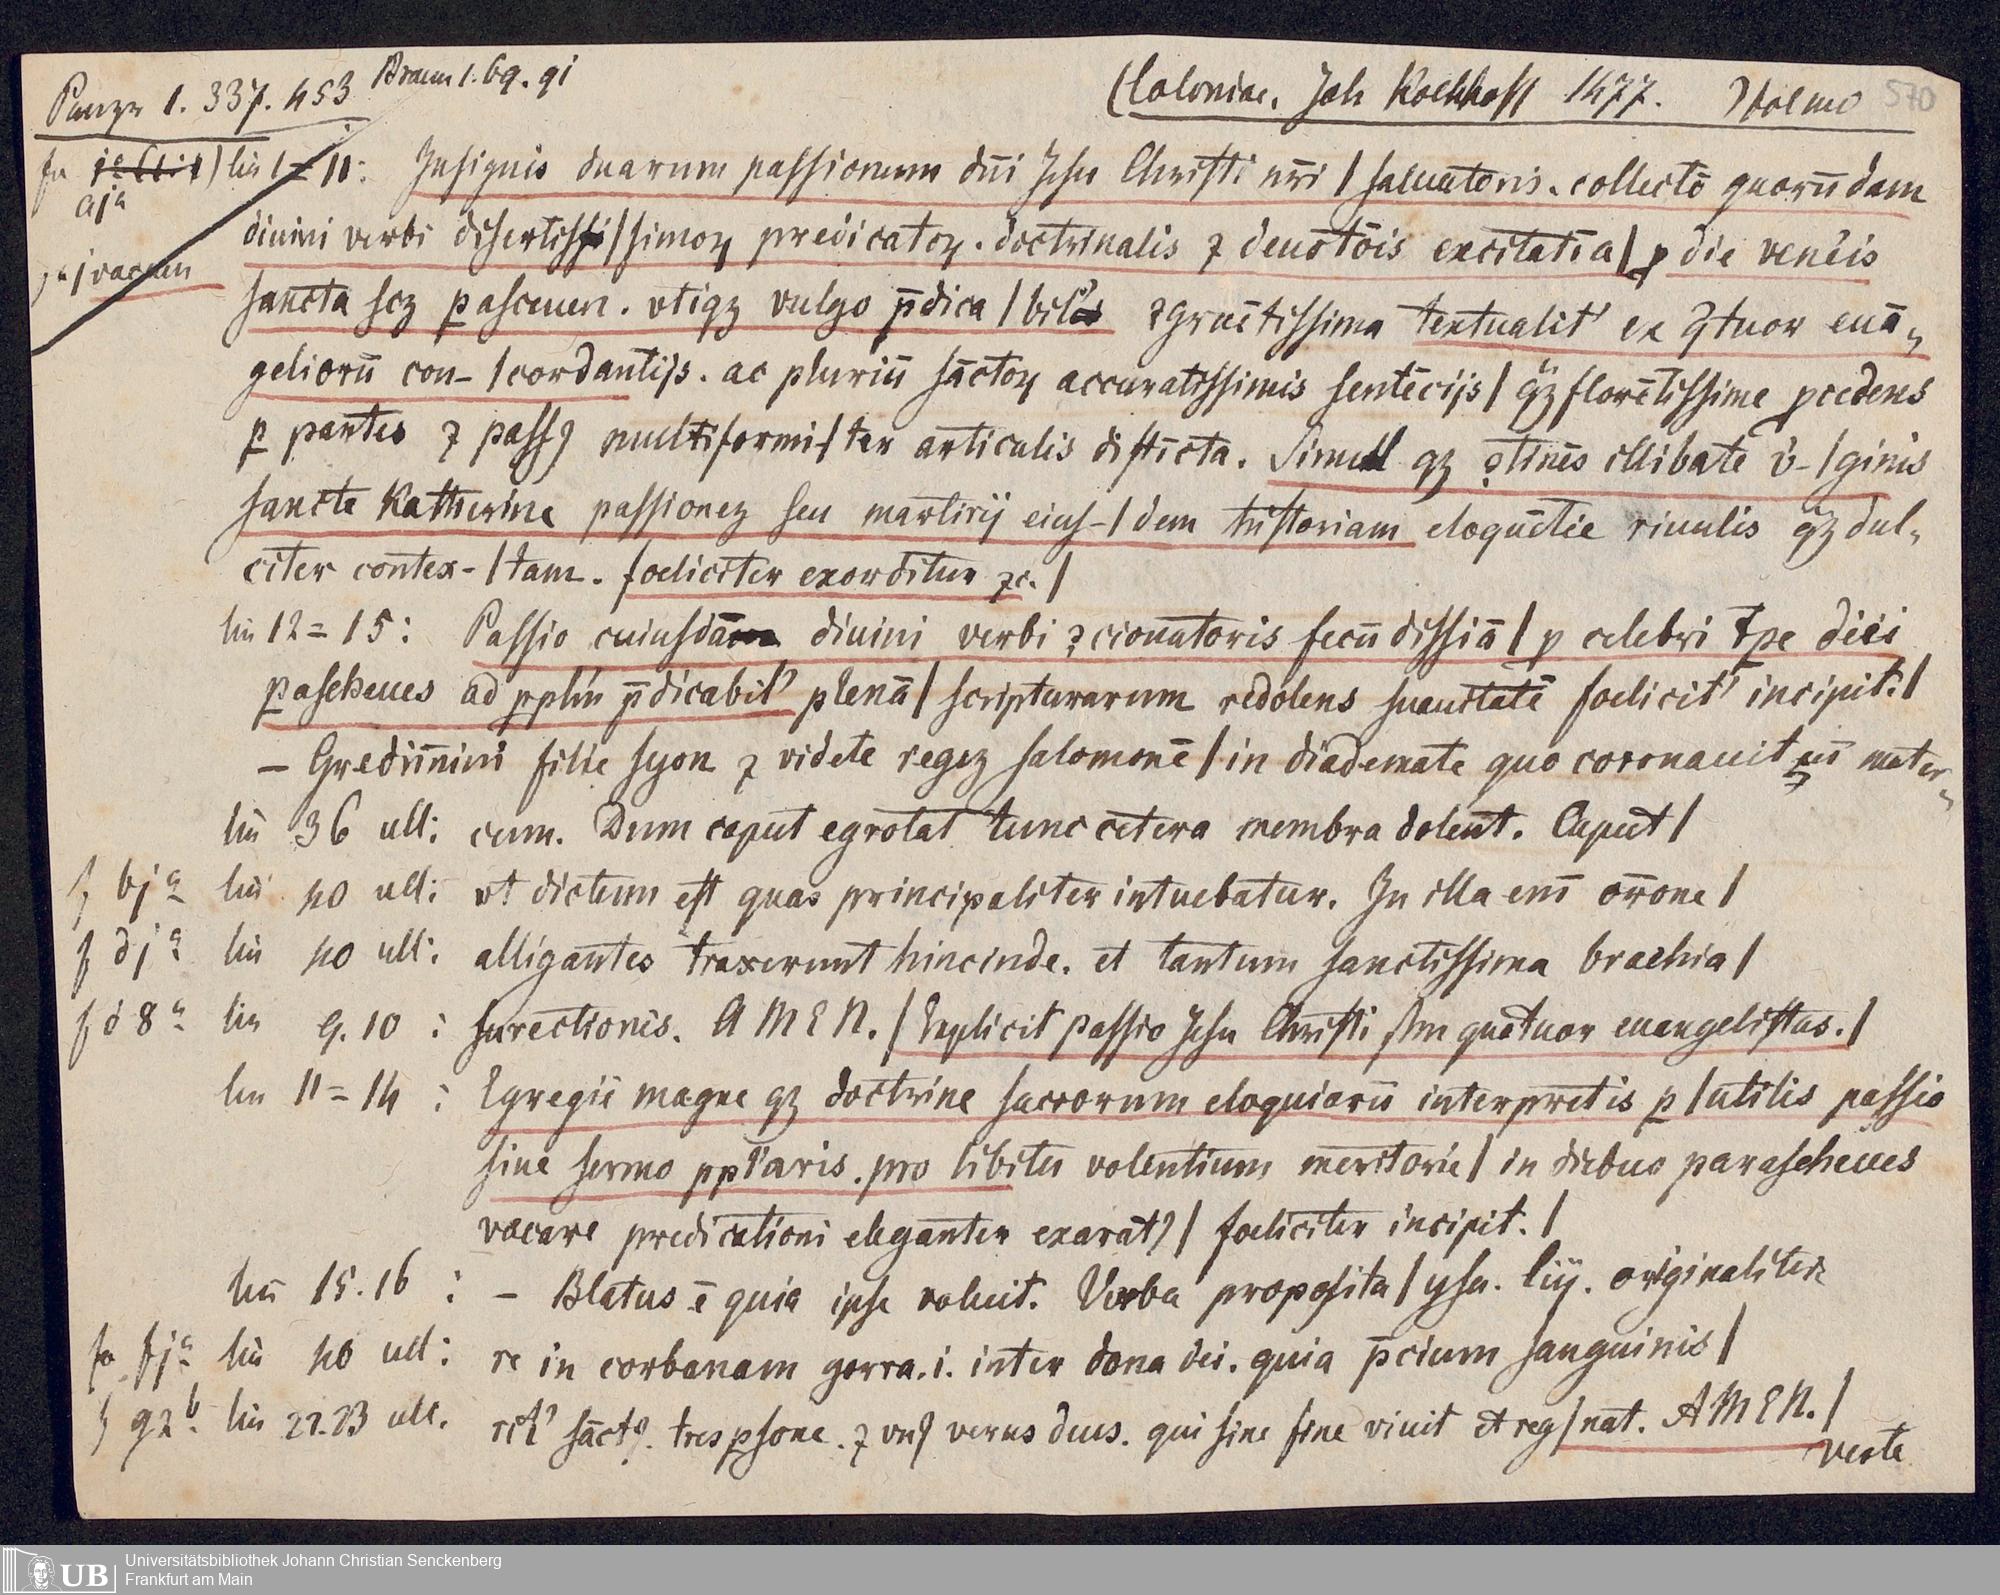 Panzr 1. 337. 453 Braun 1. 69. 91
(Coloniae. Joh Koelhoff 1477. 570
fa aja lin 1=11: Insignis duarum passionum dñi Jesu Christi nr̄i / saluatoris. collectō quorūdam
diuini verbi disertissi/simoꝝ predicatoꝝ. doctrinalis ⁊ deuotōis excitatīa / p die venēis
sancta scꝫ pasceuen. vtiqꝫ vulgo p̄dica / bilʼ ꝯgruētissima textualitʼ ex qtuor euā„
geliorū con-/cordantijs. ac pluriū sāctoꝝ accuratissimis sentēcijs / qꝫ florētissime pcedens
ꝑ partes ⁊ passꝯ multiformi-/ter articulis distīcta. Simul qꝫ ꝯtinēs illibate v̄-/ginis
sancte Katherine passionez seu martirij eius-/dem historiam eloquētie riuulis qꝫ dul„
citer contex-/tam. foeliciter exorditur ⁊c. /
lin 12=15: Passio cuiusdā diuini verbi ꝯcionatoris fecūdissiā / p celebri tp̄e diei
pascheues ad pplm̄ p̄dicabilʼ plenā / scripturarum redolens suauitatē foelicitʼ incipit. /
— Gredim̄ini filie syon ⁊ videte regeꝫ salomonē / in diademate quo coronauit eū mater„
lin 36 ult: cum. Dum caput egrotat tunc cetera membra dolent. Caput /
f bjª lin 40 ult: vt dictum est quas principaliter intuebatur. In illa enī or̄one /
f djª lin 40 ult: alligantes traxerunt hincinde. et tantum sanctissima brachia /
f d8ª lin 9. 10 : surectionis. AMEN. / Explicit passio Jesu Christi sm̄ quatuor euangelistas. /
lin 11=14 : Egregii magne qꝫ doctrine sacrorum eloquiorū interpretis ꝑ / utilis passio
siue sermo pplʼaris. pro libitu volentium meritorie / in diebus parascheues
vacare predicationi eleganter exaratꝯ / foeliciter incipit. /
lin 15. 16 : — Blatus ē quia ipse voluit. Verba proposita / ysa. liij. originaliter
fa fjª lin 40 ult: re in corbanam gorra. i. inter dona dei. quia p̄cium sanguinis /
f g2b. lin 22. 23 ult. sāctꝯ. tres psone. ⁊ vnꝯ verus deus. qui sine fine viuit et reg/nat. AMEN. /
verte
Universitätsbibliothek Johann Christian Senckenberg
Frankfurt am Main
UB